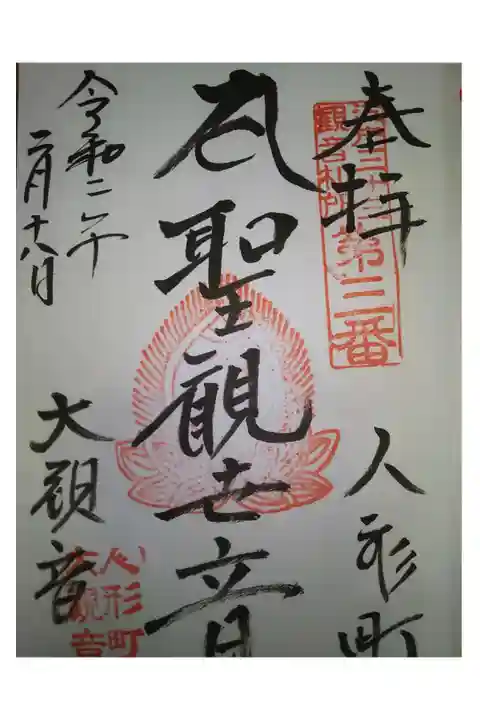 奉拝
人形町
聖観世音
令和二年
二月十八日
大観音
観音札所
第三番
人形町
大観音